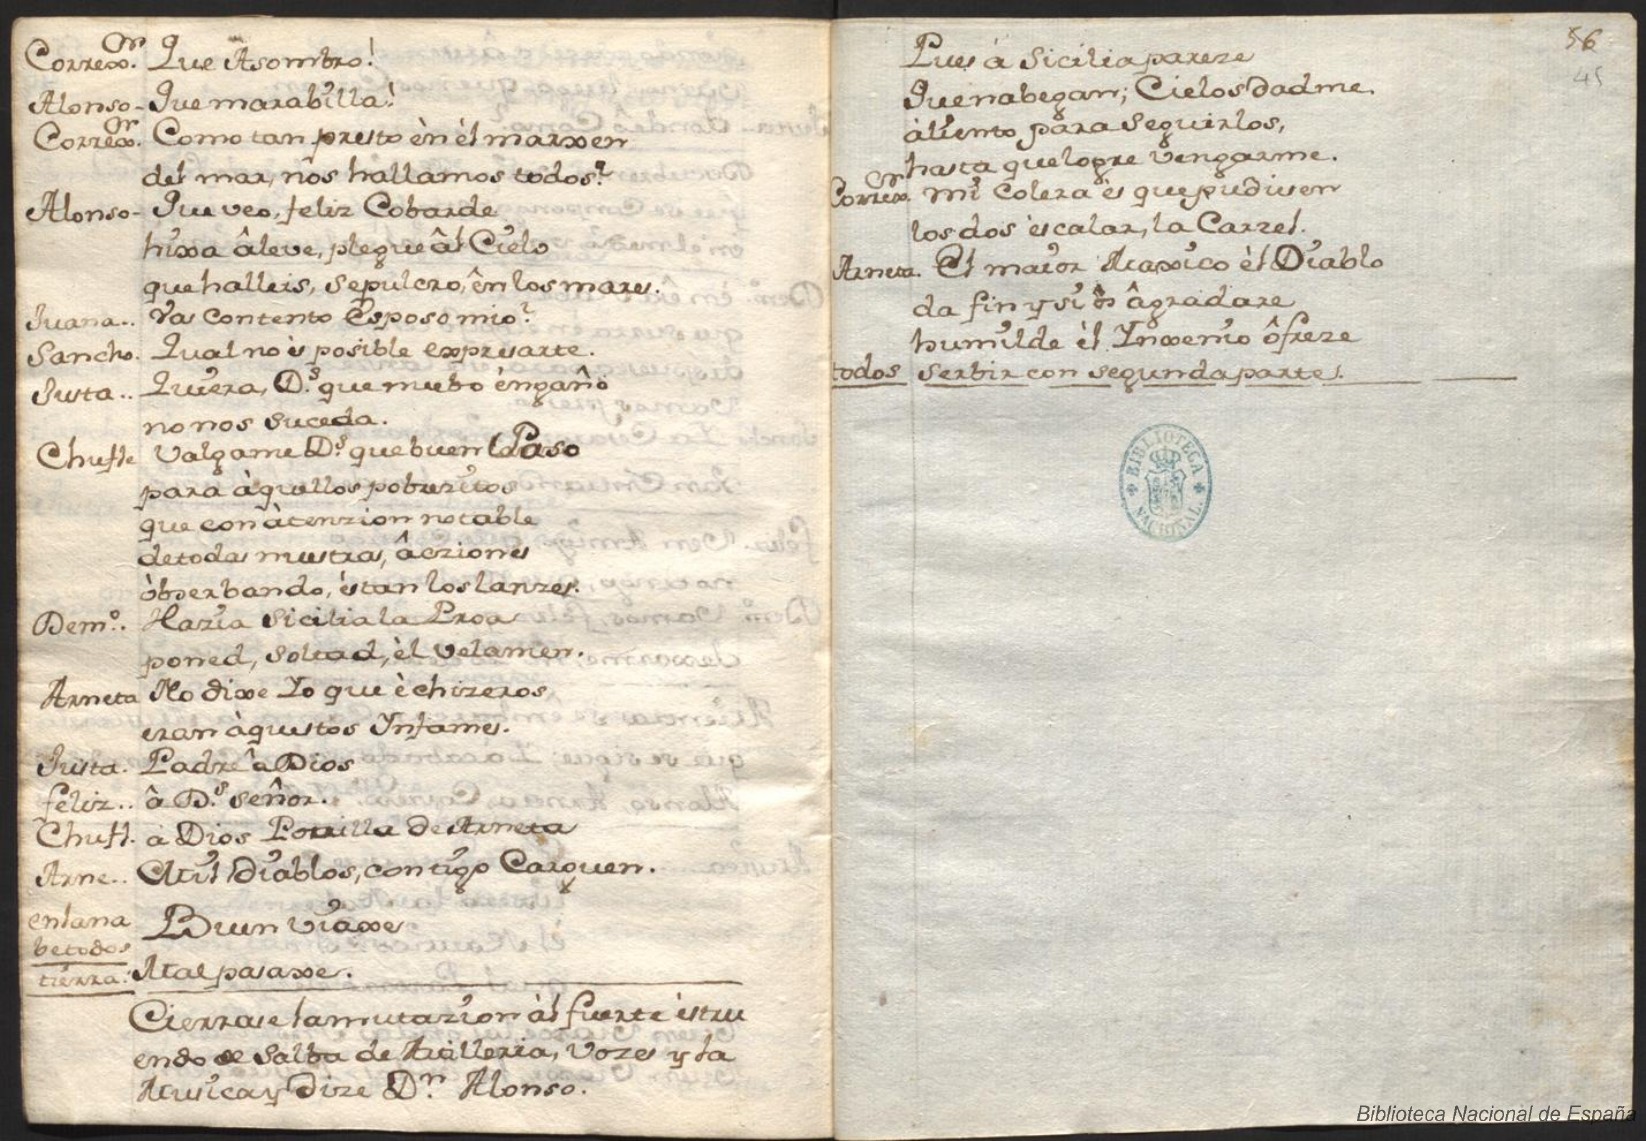 Correxor. Que Asombro!
Alonso- Que marabilla!
Correxor. Como tan presto èn èl marxen
del mar, nôs hallamos todos?
Alonso- Que veo, feliz Cobarde
hixa âleve, plegue âl Cielo
que halleis, sepulcro, ên los mares.
Juana.. Vas contento Esposo mio?
Sancho. Qual no ès posible expresarte.
Justa.. Quiera, D.s que nuebo èngaño
no nos suceda.
Chufle Valgame D.s que buen Paso
para àquellos pobrezitos
que con àtenzion notable
de todas nuestras, âcziones
òbserbando, èstan los lanzes.
Dem.o. Hazia Sicilia la Proa
poned, soltad, èl velamen.
Arneta No dixe Yo que èchizeros,
eran àquestos Infames.
Justa. Padre â Dios
feliz.. â D.s señor.
Chufl. à Dios Polilla de Arneta
Arne.. Mil Diablos, contigo Carguen.
en la na Buen viaxe
be todos
tierra. Mal pasaxe.
Cierrase la mutazion àl fuerte èstru
endo de Salba de Artilleria, vozes y la
Musica y dize D.n Alonso.
56
45
Pues à Sicilia pareze
Que nabegan; Cielos dadme.
àliento, para seguirlos,
hasta que logre vengarme.
Correxor. Mi Colera ès que pudiesen
los dos èscalar, la Carzel.
Arneta. El maior Maxico èl Diablo
da fin y si ôs âgradare
humilde èl Ynxenio ôfreze
todos serbir con segunda parte.
BIBLIOTECA NACIONAL
Biblioteca Nacional de España